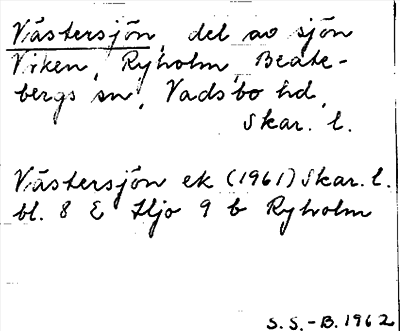 Västersjön, del av sjön
Viken, Ryholm, Beate-
bergs sn, Vadsbo hd,
Skar. l.
Västersjön ek (1961) Skar. l.
bl. 8 E Hjo 9 b Ryholm
S. S. - B. 1962